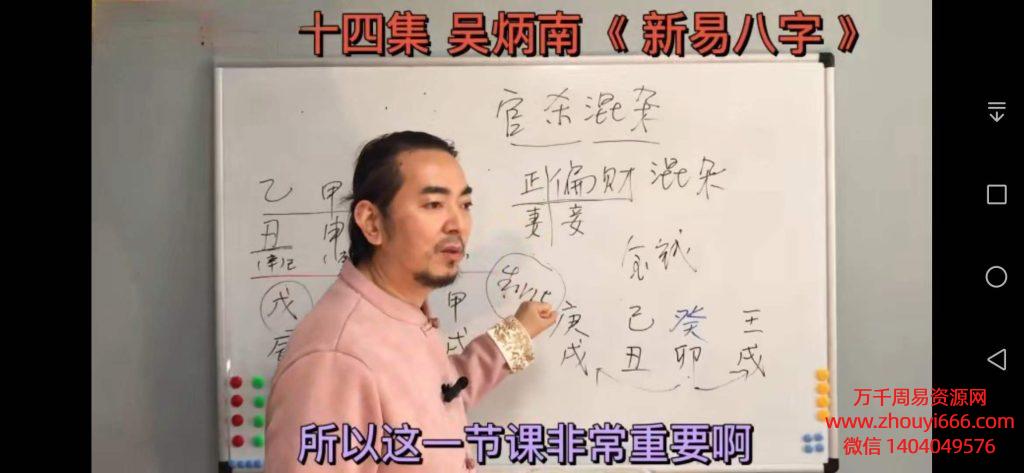 十四集 吴炳南《 新易八字 》
官杀混杂
正偏财混杂
妻 妾
乙 甲
丑 申
戊
甲
戌
庚 己 癸 壬
戌 丑 卯 戌
所以这一节课非常重要啊
万千周易资源网
www.zhouyi666.com
微信 1404049576